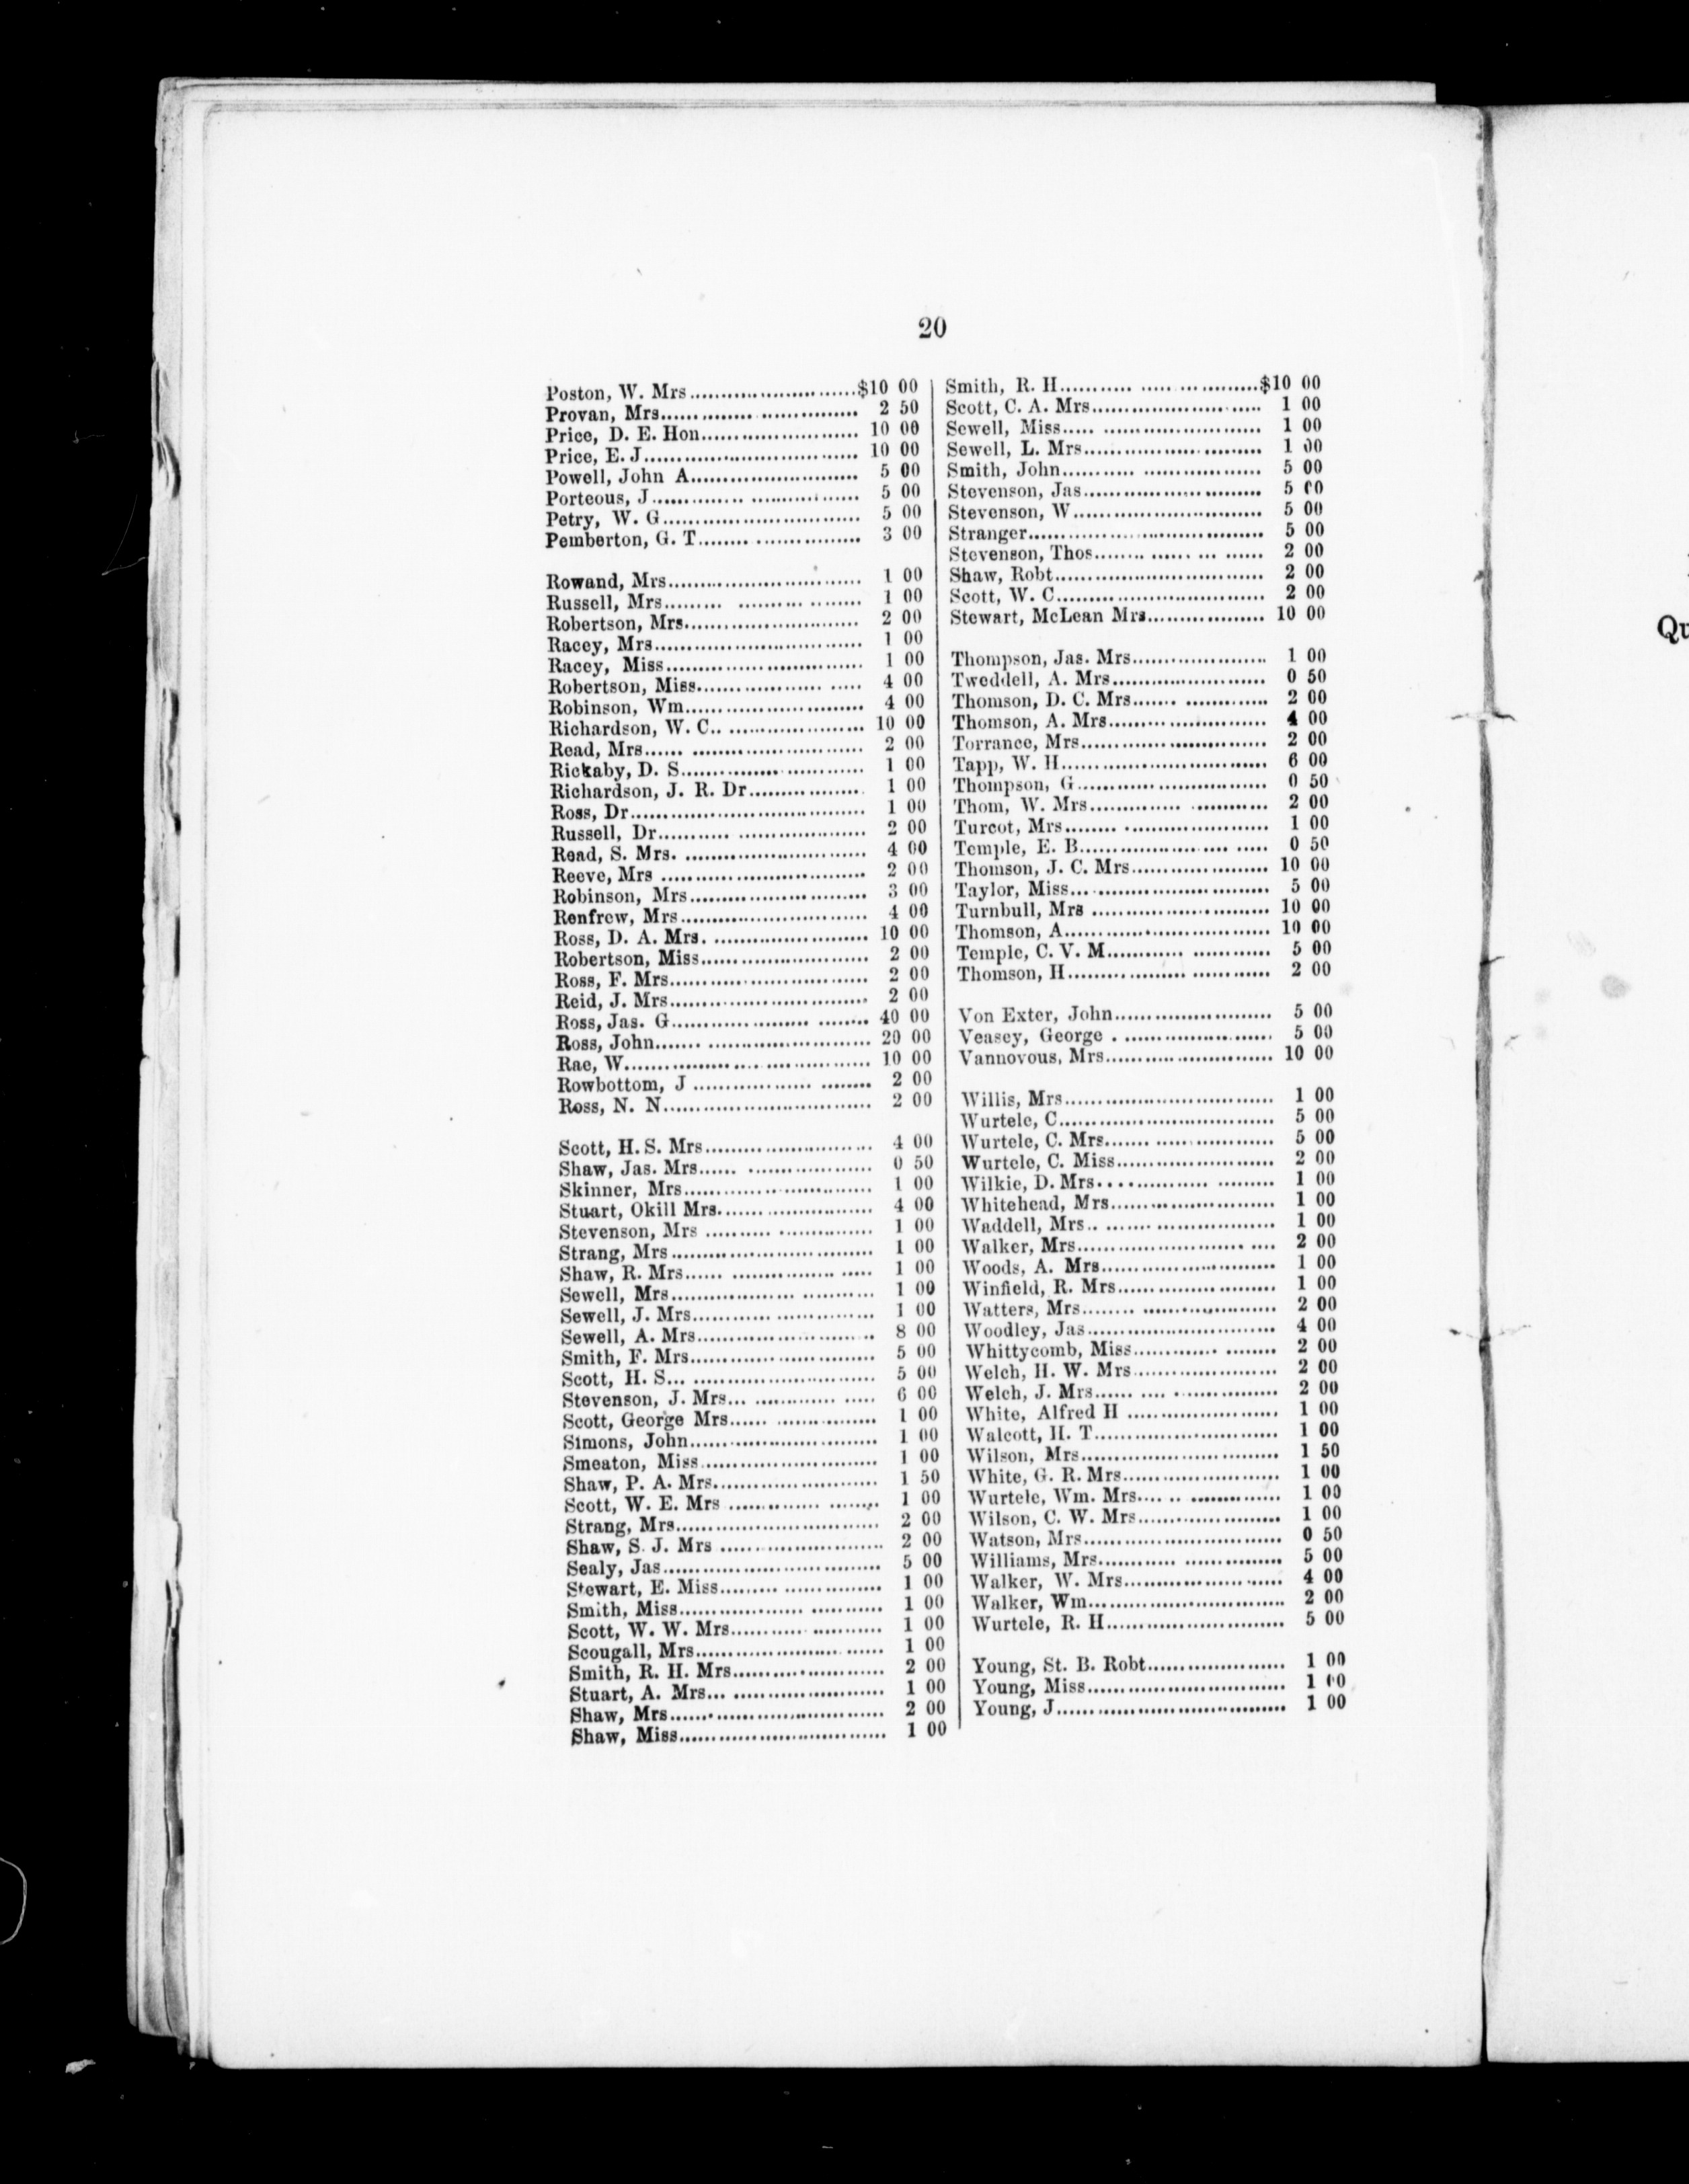 20
Poston, W. Mrs........................$10 00
Provan, Mrs............................ 2 50
Price, D. E. Hon........................ 10 00
Price, E. J................................ 10 00
Powell, John A......................... 5 00
Porteous, J.............................. 5 00
Petry, W. G.............................. 5 00
Pemberton, G. T........................ 3 00
Rowand, Mrs............................ 1 00
Russell, Mrs............................. 1 00
Robertson, Mrs.......................... 2 00
Racey, Mrs............................... 1 00
Racey, Miss.............................. 1 00
Robertson, Miss......................... 4 00
Robinson, Wm........................... 4 00
Richardson, W. C....................... 10 00
Read, Mrs................................ 2 00
Rickaby, D. S............................ 1 00
Richardson, J. R. Dr................. 1 00
Ross, Dr................................... 1 00
Russell, Dr............................... 2 00
Read, S. Mrs. ........................... 4 00
Reeve, Mrs .............................. 2 00
Robinson, Mrs........................... 3 00
Renfrew, Mrs............................ 4 00
Ross, D. A. Mrs. ....................... 10 00
Robertson, Miss......................... 2 00
Ross, F. Mrs.............................. 2 00
Reid, J. Mrs.............................. 2 00
Ross, Jas. G.............................. 40 00
Ross, John................................ 20 00
Rae, W..................................... 10 00
Rowbottom, J ........................... 2 00
Ross, N. N................................ 2 00
Scott, H. S. Mrs......................... 4 00
Shaw, Jas. Mrs.......................... 0 50
Skinner, Mrs............................. 1 00
Stuart, Okill Mrs....................... 4 00
Stevenson, Mrs ......................... 1 00
Strang, Mrs .............................. 1 00
Shaw, R. Mrs............................ 1 00
Sewell, Mrs............................... 1 00
Sewell, J. Mrs............................ 1 00
Sewell, A. Mrs........................... 8 00
Smith, F. Mrs............................ 5 00
Scott, H. S................................ 5 00
Stevenson, J. Mrs...................... 6 00
Scott, George Mrs...................... 1 00
Simons, John............................ 1 00
Smeaton, Miss........................... 1 00
Shaw, P. A. Mrs......................... 1 50
Scott, W. E. Mrs ....................... 1 00
Strang, Mrs............................... 2 00
Shaw, S. J. Mrs ........................ 2 00
Sealy, Jas................................. 5 00
Stewart, E. Miss........................ 1 00
Smith, Miss............................... 1 00
Scott, W. W. Mrs....................... 1 00
Scougall, Mrs............................ 1 00
Smith, R. H. Mrs....................... 2 00
Stuart, A. Mrs........................... 1 00
Shaw, Mrs................................ 2 00
Shaw, Miss............................... 1 00
Smith, R. H..............................$10 00
Scott, C. A. Mrs......................... 1 00
Sewell, Miss.............................. 1 00
Sewell, L. Mrs........................... 1 00
Smith, John.............................. 5 00
Stevenson, Jas........................... 5 00
Stevenson, W............................ 5 00
Stranger................................... 5 00
Stevenson, Thos......................... 2 00
Shaw, Robt............................... 2 00
Scott, W. C............................... 2 00
Stewart, McLean Mrs.................. 10 00
Thompson, Jas. Mrs.................... 1 00
Tweddell, A. Mrs....................... 0 50
Thomson, D. C. Mrs.................... 2 00
Thomson, A. Mrs........................ 4 00
Torrance, Mrs............................ 2 00
Tapp, W. H............................... 6 00
Thompson, G............................ 0 50
Thom, W. Mrs........................... 2 00
Turcot, Mrs.............................. 1 00
Temple, E. B............................. 0 50
Thomson, J. C. Mrs.................... 10 00
Taylor, Miss.............................. 5 00
Turnbull, Mrs ........................... 10 00
Thomson, A.............................. 10 00
Temple, C. V. M........................ 5 00
Thomson, H.............................. 2 00
Von Exter, John........................ 5 00
Veasey, George ........................ 5 00
Vannovous, Mrs......................... 10 00
Willis, Mrs............................... 1 00
Wurtele, C................................ 5 00
Wurtele, C. Mrs......................... 5 00
Wurtele, C. Miss........................ 2 00
Wilkie, D. Mrs........................... 1 00
Whitehead, Mrs......................... 1 00
Waddell, Mrs............................ 1 00
Walker, Mrs.............................. 2 00
Woods, A. Mrs........................... 1 00
Winfield, R. Mrs........................ 1 00
Watters, Mrs............................. 2 00
Woodley, Jas............................. 4 00
Whittycomb, Miss...................... 2 00
Welch, H. W. Mrs...................... 2 00
Welch, J. Mrs............................ 2 00
White, Alfred H ....................... 1 00
Walcott, H. T............................ 1 00
Wilson, Mrs.............................. 1 50
White, G. R. Mrs........................ 1 00
Wurtele, Wm. Mrs...................... 1 00
Wilson, C. W. Mrs...................... 1 00
Watson, Mrs.............................. 0 50
Williams, Mrs............................ 5 00
Walker, W. Mrs......................... 4 00
Walker, Wm.............................. 2 00
Wurtele, R. H........................... 5 00
Young, St. B. Robt..................... 1 00
Young, Miss.............................. 1 00
Young, J................................... 1 00
Qu